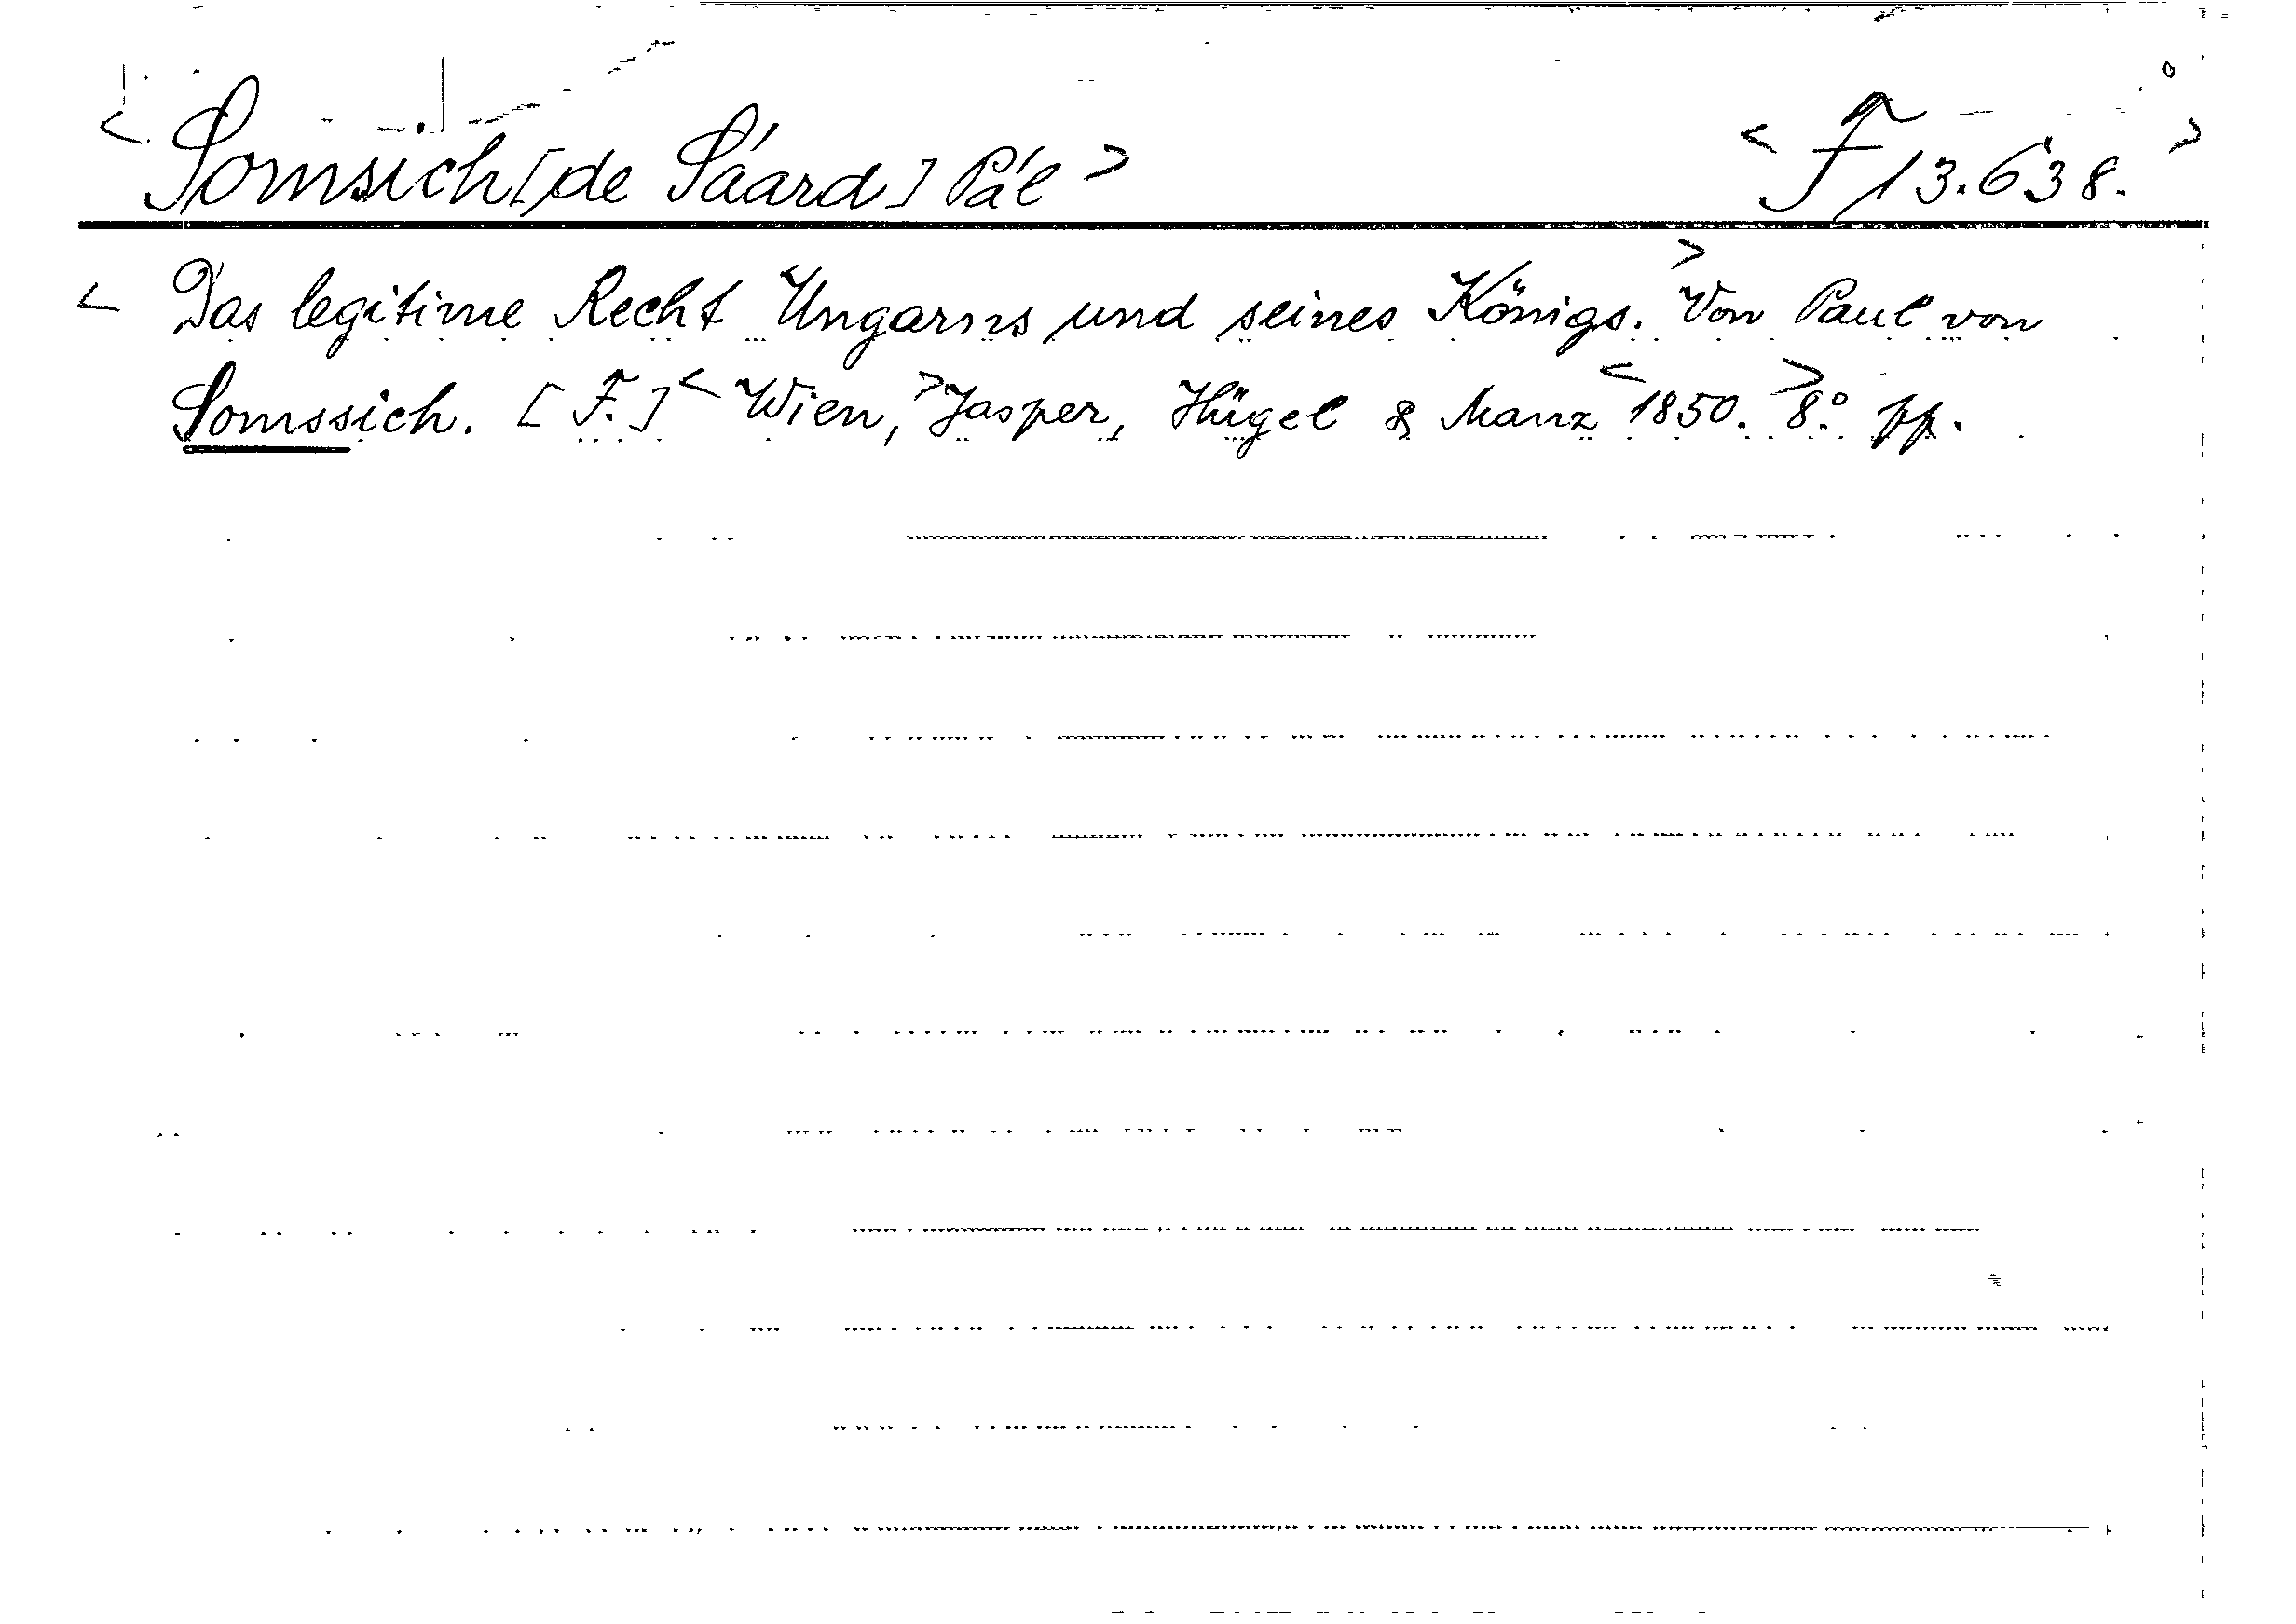 < Somsich [de Sáard] Pál > < F 13.638. >
< Das legitime Recht Ungarns und seines Königs. > Von Paul von
Somssich. [F.] < Wien, > Jasper, Hügel & Manz < 1850. > 8° pp.